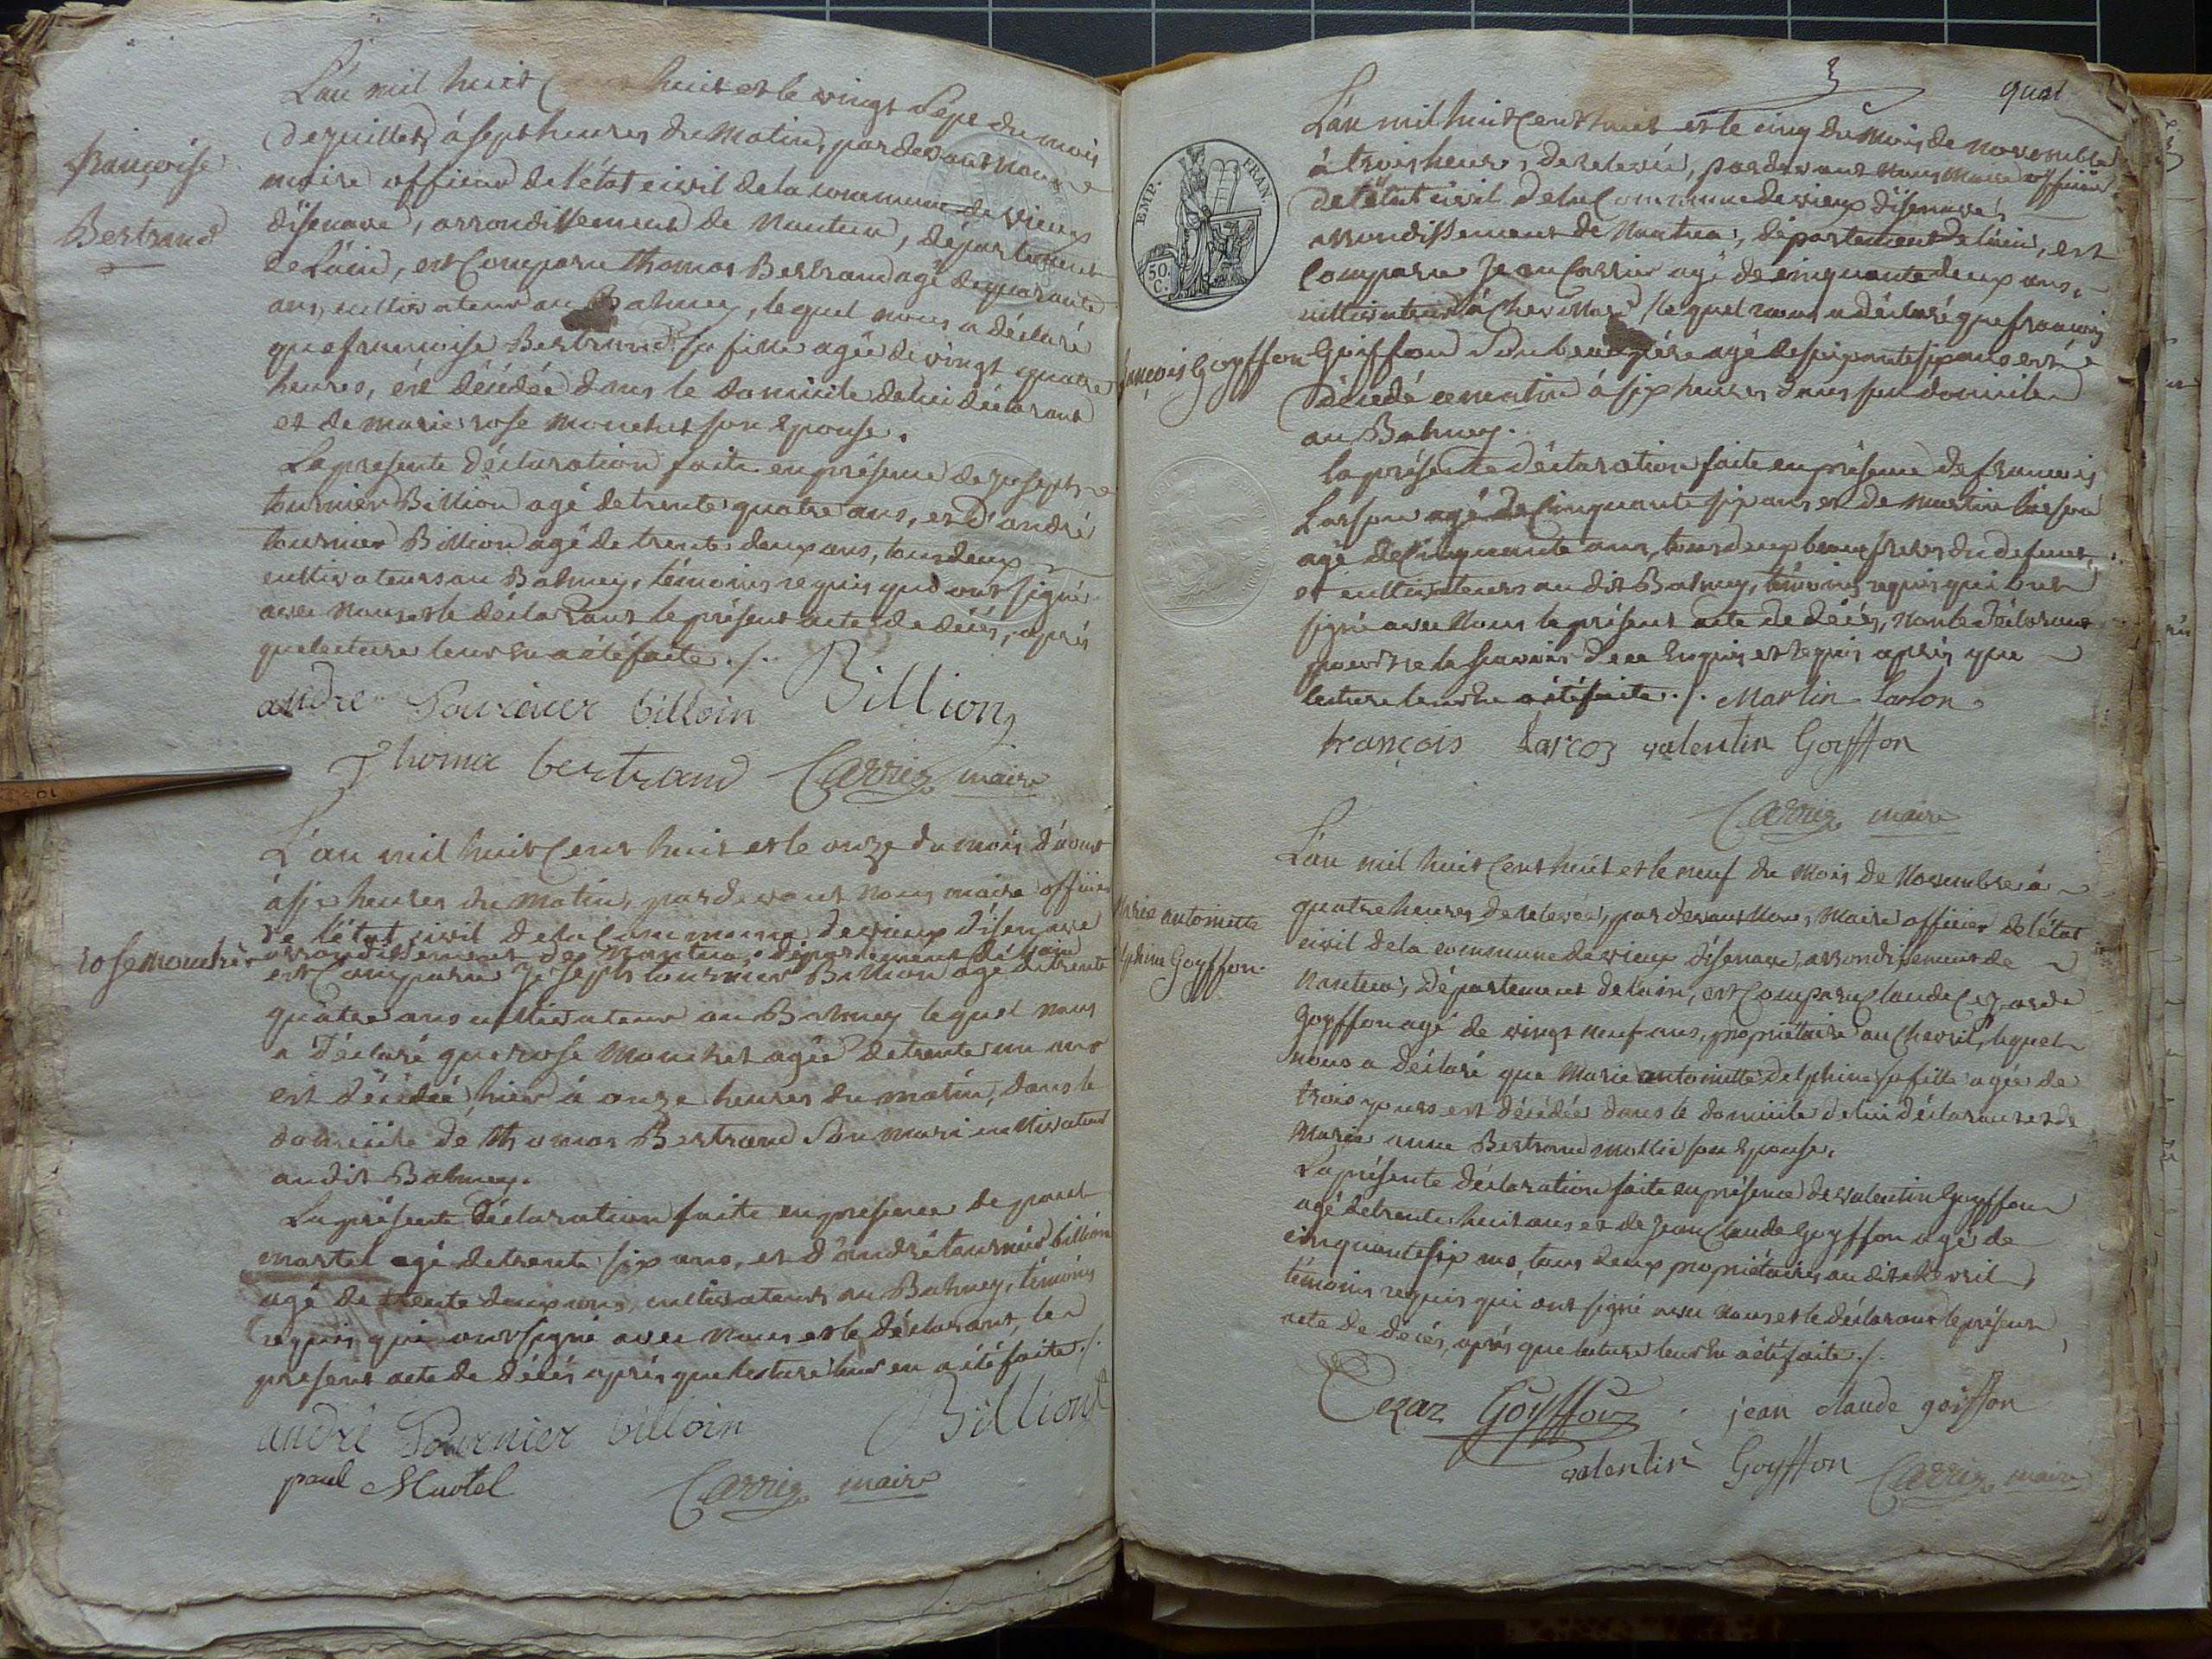 L'an mil huit Cent huit et le vingt Sept du mois
de juillet, à sept heures du Matin, pardevant nous
maire officier de l'état civil de la commune de vieux
disenave, arrondissement de Nantua, département
de Lain, est Comparu thomas Bertrand agé de quarante
ans, cultivateur au Balmey, lequel nous a déclaré
que francoise Bertrand sa fille agée de vingt quatre
heures, est décédée dans le domicile de lui déclarant
et de marie rose mouchet son Epouse.
La presente déclaration faite en présence de joseph
tournier Billion agé de trente quatre ans, et d'andré
tournier Billion agé de trente deux ans, tous deux
cultivateurs au Balmey, témoins requis qui ont signé
avec nous et le déclarant le présent acte de décès, après
que lecture leur en a été faite ./.
françoise
Bertrand
andre Tournier billoin Billion
Thoma bertrand Carrier maire
L'an mil huit Cent huit et le onze du mois d'aout
à six heures du matin, pardevant nous maire officier
de l'état civil de la Commune de vieux disenave
arrondissement de Nantua, département de lain
est Comparu joseph tournier Billion agé de trente
quatre ans cultivateur au Balmey lequel nous
a déclaré que rose Mouchet agée de trente un ans
est décédée hier à onze heures du matin, dans le
domicile de thomas Bertrand Son mari cultivateur
au dit Balmey.
La présente Déclaration faite en presence de paul
martel agé de trente six ans, et d'andré tournier billion
agé de trente deux ans, cultivateurs au Balmey, témoins
requis qui ont signé avec nous et le déclarant, le
present acte de décès après que lecture leur en a été faite ./.
rose mouchet
andré Tournier billoin Billion
paul Martel Carrier maire
3
EMP. FRAN.
50. C.
L'an mil huit Cent huit et le cinq du mois de novembre
à trois heures de relevée, pardevant nous maire officier
de l'état civil de la Commune de vieux disenave,
arrondissement de Nantua, département de lain, est
Comparu jean Carrier agé de cinquante deux ans,
cultivateur à , lequel nous a déclaré que francois
Goiffon Son beau père agé de soixante six ans est
Décédé ce matin à six heures dans son domicile
au Balmey.
la présente déclaration faite en présence de francois
Larson agé de Cinquante six ans et de martin larson
agé de Cinquante ans, tous deux beaux freres du defunt,
et cultivateurs au dit Balmey, témoins requis qui ont
signé avec Nous le présent acte de décès, non le déclarant
pour ne le savoir de ce Enquis et requis après que
lecture leur en a été faite ./. Martin Larson
françois Goyffon
françois Larcoz valentin Goyffon
Carrier maire
L'an mil huit Cent huit et le neuf du Mois de Novembre à
quatre heures de relevée, pardevant Nous Maire officier de l'état
civil de la commune de vieux disenave, arrondissement de
Nantua, Département de lain, est Comparu Claude Cezard
Goyffon agé de vingt neuf ans, propriétaire au Chevril, lequel
nous a déclaré que Marie antoinette Delphine sa fille agée de
trois jours est décédée dans le domicile de lui déclarant et de
Marie anne Bertrand mollie son Epouse.
La présente déclaration faite en présence de valentin Goyffon
agé de trente huit ans et de Jean Claude Goyffon agé de
cinquante six ans, tous deux propriétaires au dit Chevril,
témoins requis qui ont signé avec Nous et le déclarant le présent
acte de décès, après que lecture leur en a été faite ./.
Marie antoinette
delphine Goyffon.
Cezar Goyffon jean claude goiffon
valentin Goyffon Carrier maire